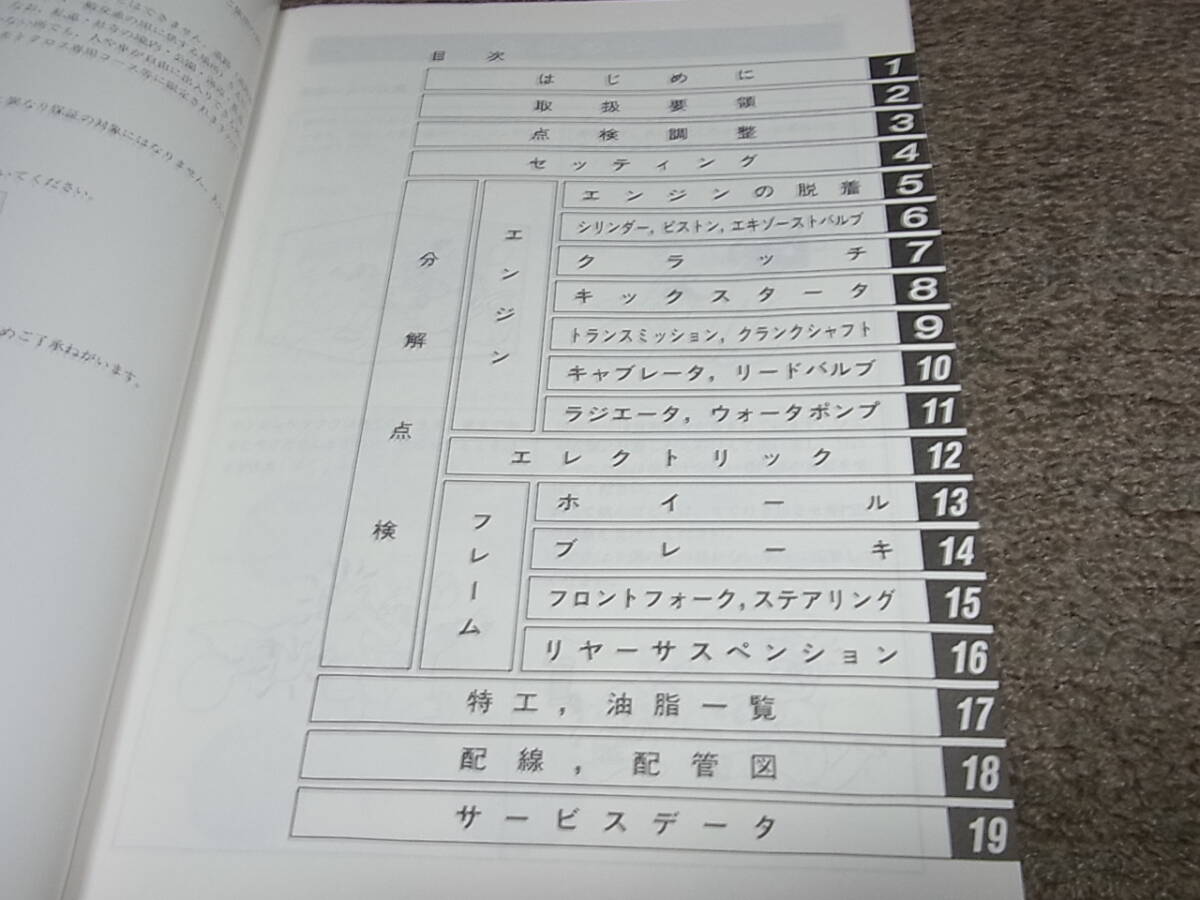 いてください。
めご了承ねがいます。
目次
はじめに 1
取扱要領 2
点検調整 3
セッティング 4
分解点検
エンジン
エンジンの脱着 5
シリンダー, ピストン, エキゾーストバルブ 6
クラッチ 7
キックスタータ 8
トランスミッション, クランクシャフト 9
キャブレータ, リードバルブ 10
ラジエータ, ウォータポンプ 11
エレクトリック 12
フレーム
ホイール 13
ブレーキ 14
フロントフォーク, ステアリング 15
リヤーサスペンション 16
特工, 油脂一覧 17
配線, 配管図 18
サービスデータ 19